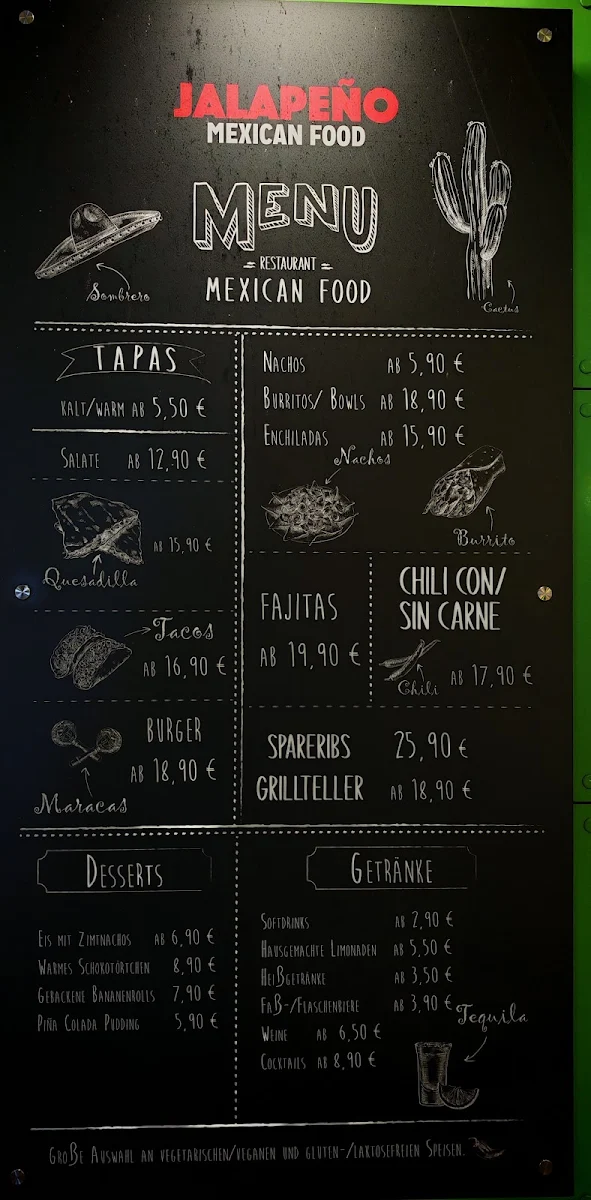 JALAPEÑO
MEXICAN FOOD
MENU
RESTAURANT
MEXICAN FOOD
Sombrero
Cactus
TAPAS
KALT/WARM AB 5,50 €
SALATE AB 12,90 €
AB 15,90 €
Quesadilla
Tacos
AB 16,90 €
BURGER
AB 18,90 €
Maracas
NACHOS AB 5,90 €
BURRITOS/ BOWLS AB 18,90 €
ENCHILADAS AB 15,90 €
Nachos
Burrito
FAJITAS
AB 19,90 €
CHILI CON/
SIN CARNE
Chili AB 17,90 €
SPARERIBS 25,90 €
GRILLTELLER AB 18,90 €
DESSERTS
EIS MIT ZIMTNACHOS AB 6,90 €
WARMES SCHOKOTÖRTCHEN 8,90 €
GEBACKENE BANANENROLLS 7,90 €
PIÑA COLADA PUDDING 5,90 €
GETRÄNKE
SOFTDRINKS AB 2,90 €
HAUSGEMACHTE LIMONADEN AB 5,50 €
HEIßGETRÄNKE AB 3,50 €
FAß-/FLASCHENBIERE AB 3,90 €
WEINE AB 6,50 €
COCKTAILS AB 8,90 €
Tequila
GROßE AUSWAHL AN VEGETARISCHEN/VEGANEN UND GLUTEN-/LAKTOSEFREIEN SPEISEN.